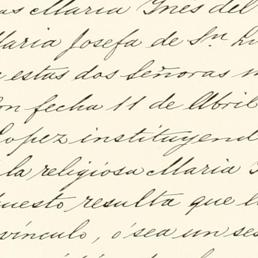 as Maria Ines del
Maria Josefa de Sn Lu
estas dos Señoras
on fecha 11 de Abril
Lopez instituyend
la religiosa Maria
uesto, resulta que l
vínculo, ó sea un ses